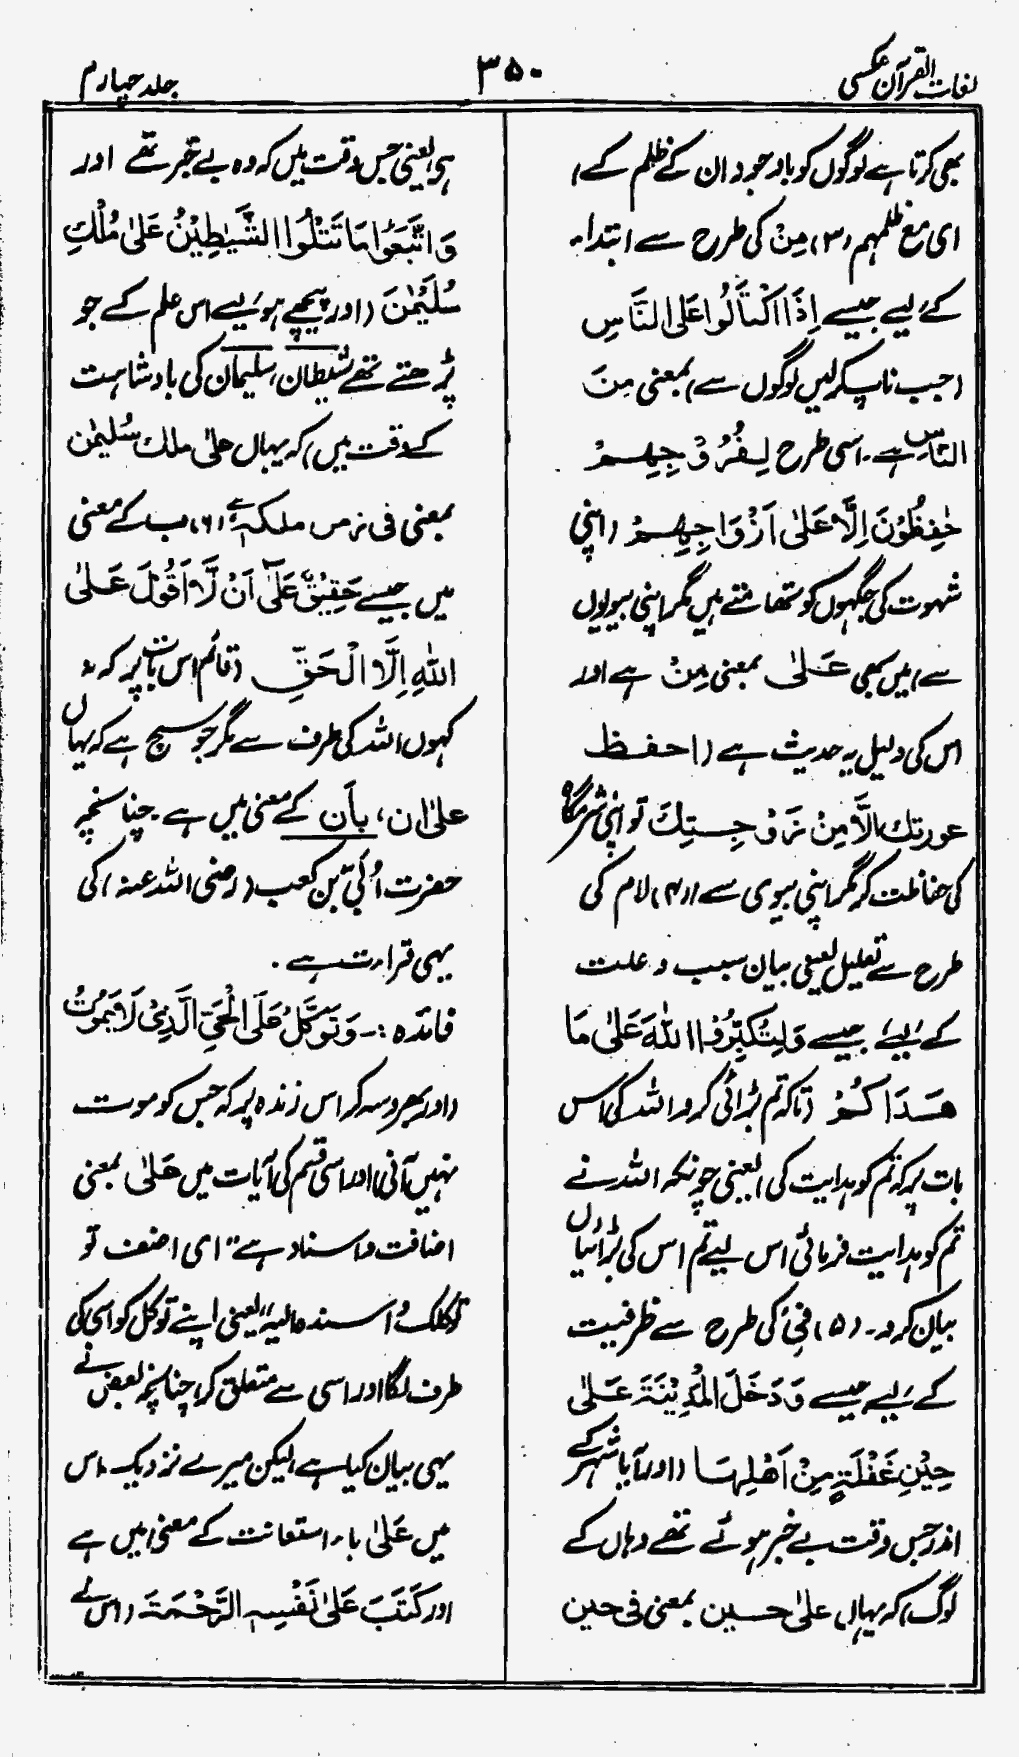 لغات القرآن عکسی
۳۵۰
جلد چہارم
بھی کرتا ہے لوگوں کو باوجود ان کے ظلم کے)
ای مع ظلمہم (۳) مِنْ کی طرح سے ابتداء
کے لیے جیسے اِذَا اكْتَالُوا عَلَى النَّاسِ
(جب ناپ کر لیں لوگوں سے) بمعنی مِنَ
النَّاسِ ہے۔ اسی طرح لِفُرُوْجِهِمْ
حٰفِظُوْنَ اِلَّا عَلٰى اَزْوَاجِهِمْ (اپنی
شہوت کی جگہوں کو تھامتے ہیں مگر اپنی بیویوں
سے) میں بھی عَلٰى بمعنی مِنْ ہے اور
اس کی دلیل یہ حدیث ہے (احفظ
عورتك اِلَّا مِنْ زَوْجِتِكَ تو اپنی شرمگاہ
کی حفاظت کر مگر اپنی بیوی سے) (۴) لام کی
طرح سے تعلیل یعنی بیان سبب و علت
کے لیے جیسے وَلِتُكَبِّرُوا اللّٰهَ عَلٰى مَا
هَدَاكُمْ (تاکہ تم بڑائی کرو اللہ کی اس
بات پر کہ تم کو ہدایت کی) یعنی چونکہ اللہ نے
تم کو ہدایت فرمائی اس لیے تم اس کی بڑائیاں
بیان کرو۔ (۵) فِیْ کی طرح سے ظرفیت
کے لیے جیسے وَدَخَلَ الْمَدِيْنَةَ عَلٰى
حِيْنِ غَفْلَةٍ مِنْ اَهْلِهَا (اور آیا شہر کے
اندر جس وقت بے خبر ہوئے تھے وہاں کے
لوگ) کہ یہاں علٰى حين بمعنی فی حین
ہی یعنی جس وقت میں کہ وہ بے خبر تھے اور
وَاتَّبَعُوا مَا تَتْلُوا الشَّيٰطِيْنُ عَلٰى مُلْكِ
سُلَيْمٰنَ (اور پیچھے ہو لیے اس علم کے جو
پڑھتے تھے شیطان، سلیمان کی بادشاہت
کے وقت میں) کہ یہاں علٰى ملك سُليمٰن
بمعنی فی زمن ملكہ ہے (۶) ب کے معنی
میں جیسے حَقِيْقٌ عَلٰٓى اَنْ لَّا اَقُوْلَ عَلٰى
اللّٰهِ اِلَّا الْحَقَّ (قائم اس بات پر کہ نہ
کہوں اللہ کی طرف سے مگر جو سچ ہے کہ یہاں
علٰى ان، بأن کے معنی میں ہے۔ چنانچہ
حضرت اُبَیّ بن کعب (رضی اللہ عنہ) کی
یہی قرارت ہے۔
فائدہ:۔ وَتَوَكَّلْ عَلَى الْحَيِّ الَّذِىْ لَا يَمُوْتُ
(اور بھروسہ کر اس زندہ پر کہ جس کو موت
نہیں آتی) اور اسی قسم کی آیات میں عَلٰى بمعنی
اضافت و اسناد ہے" ای اضف تو
توکلک و اسندہ الیہ" یعنی اپنے توکل کو اسی کی
طرف لگا اور اسی سے متعلق کر، چنانچہ بعض نے
یہی بیان کیا ہے لیکن میرے نزدیک اس
میں عَلٰى باء استعانت کے معنی میں ہے
اور كَتَبَ عَلٰى نَفْسِهِ الرَّحْمَةَ (اس نے